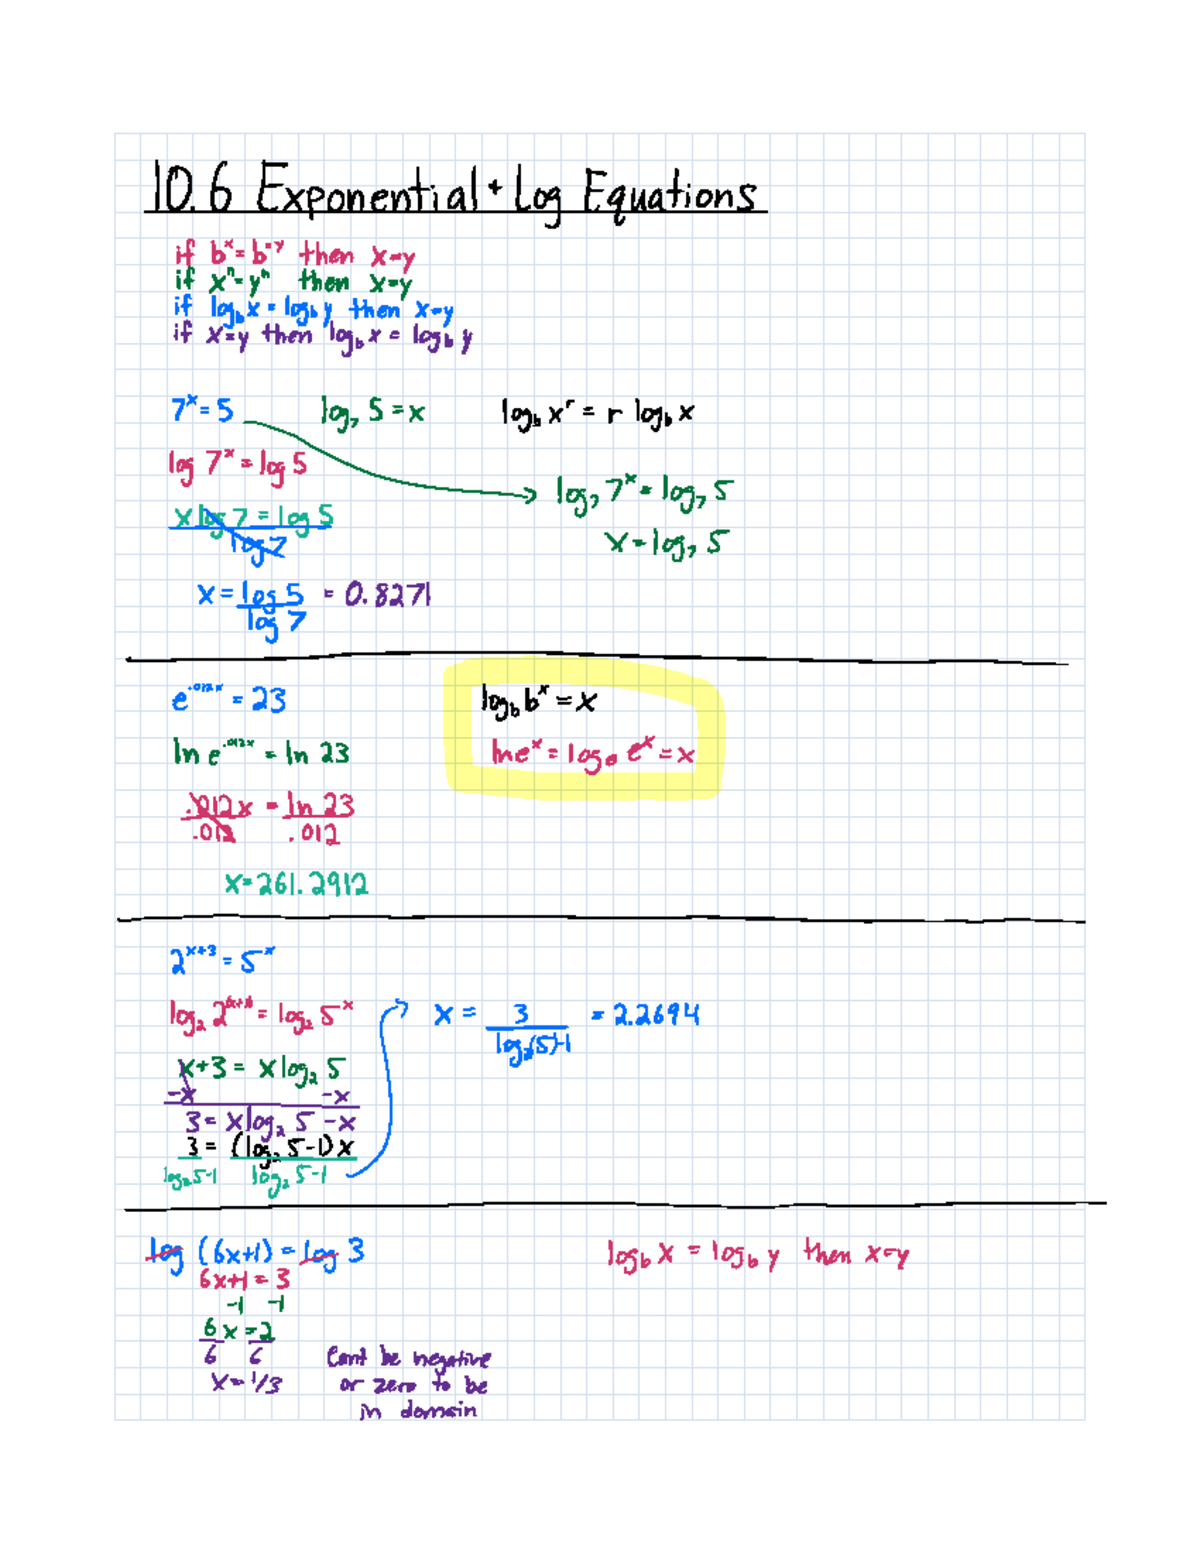 10.6 Exponential + Log Equations
if bˣ = b^y then x=y
if xⁿ = yⁿ then x=y
if log_b x = log_b y then x=y
if x=y then log_b x = log_b y
7ˣ = 5 log₇ 5 = x log_b xʳ = r log_b x
log 7ˣ = log 5
log₇ 7ˣ = log₇ 5
x log 7 = log 5
log 7
x = log₇ 5
x = log 5 / log 7 = 0.8271
e^.012x = 23 log_b bˣ = x
ln e^.012x = ln 23 ln eˣ = log_e eˣ = x
.012x = ln 23
.012 .012
x = 261.2912
2^x+3 = 5ˣ
log₂ 2^x+3 = log₂ 5ˣ x = 3 / log₂(5)-1 = 2.2694
x+3 = x log₂ 5
-x -x
3 = x log₂ 5 - x
3 = (log₂ 5-1)x
log₂ 5-1 log₂ 5-1
log (6x+1) = log 3 log_b x = log_b y then x=y
6x+1 = 3
-1 -1
6x = 2
6 6
x = 1/3
Cant be negative
or zero to be
in domain